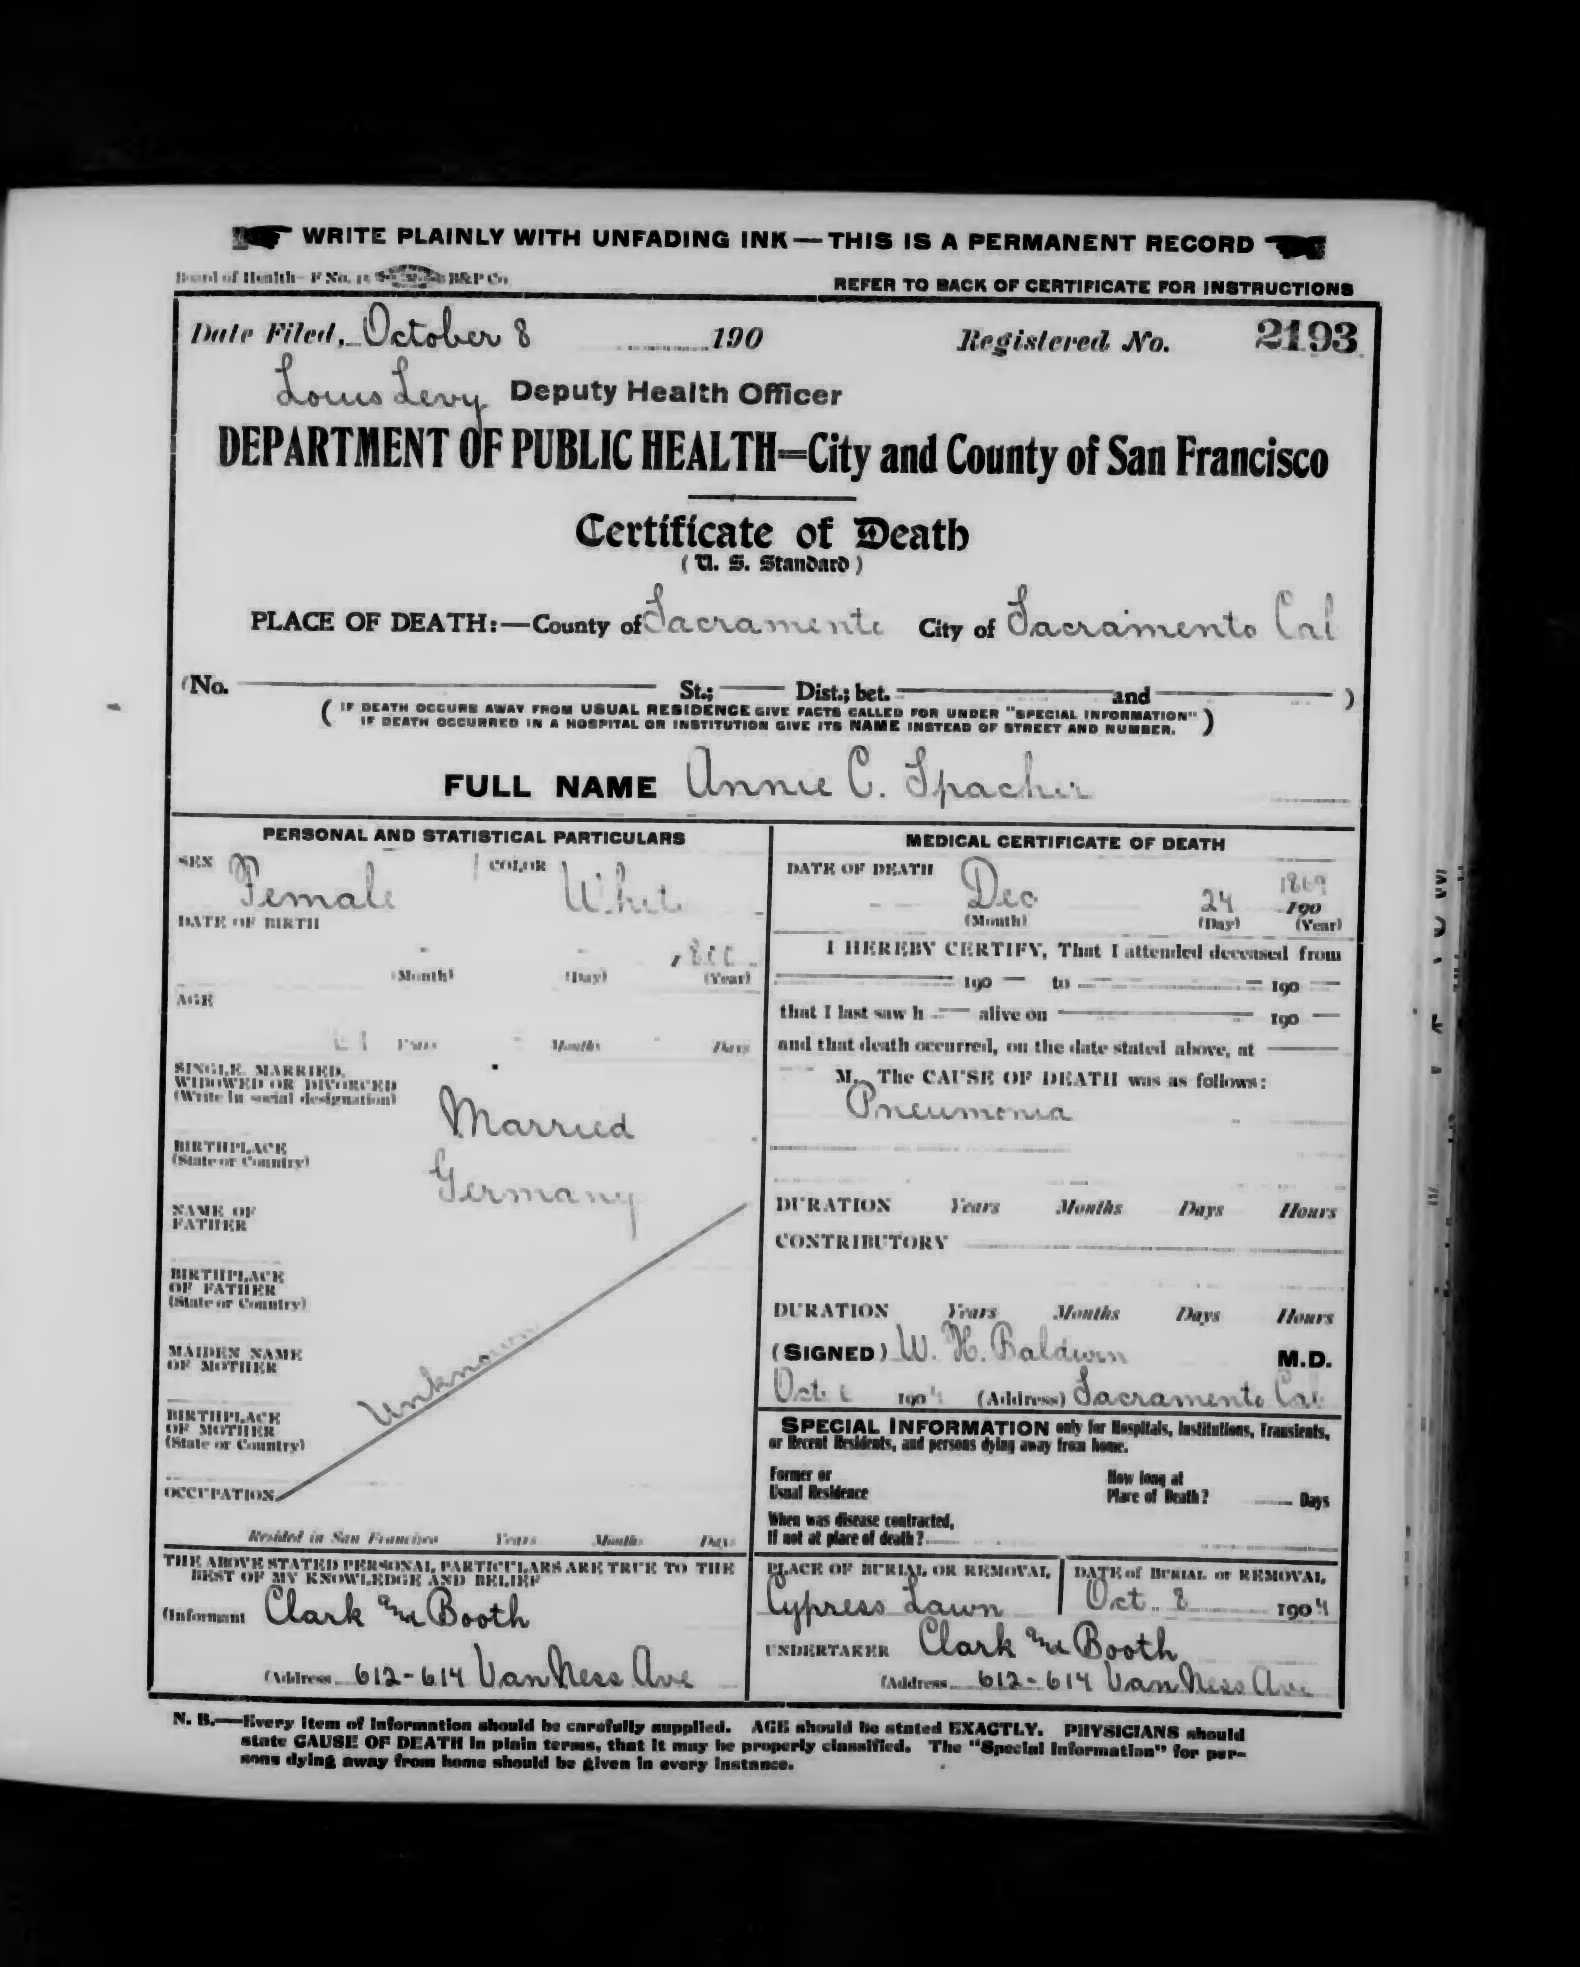 WRITE PLAINLY WITH UNFADING INK—THIS IS A PERMANENT RECORD
Board of Health—F No. B&P Co
REFER TO BACK OF CERTIFICATE FOR INSTRUCTIONS
Date Filed, October 8 190
Registered No. 2193
Louis Levy Deputy Health Officer
DEPARTMENT OF PUBLIC HEALTH=City and County of San Francisco
Certificate of Death
( U. S. Standard )
PLACE OF DEATH:—County of Sacramento City of Sacramento Cal
(No. St.; Dist.; bet. and )
( IF DEATH OCCURS AWAY FROM USUAL RESIDENCE GIVE FACTS CALLED FOR UNDER "SPECIAL INFORMATION"
IF DEATH OCCURRED IN A HOSPITAL OR INSTITUTION GIVE ITS NAME INSTEAD OF STREET AND NUMBER. )
FULL NAME Annie C. Spacher
PERSONAL AND STATISTICAL PARTICULARS
SEX Female COLOR White
DATE OF BIRTH
(Month) (Day) (Year)
AGE
Years Months Days
SINGLE, MARRIED,
WIDOWED OR DIVORCED
(Write in social designation)
Married
BIRTHPLACE
(State or Country)
Germany
NAME OF
FATHER
BIRTHPLACE
OF FATHER
(State or Country)
MAIDEN NAME
OF MOTHER
Unknown
BIRTHPLACE
OF MOTHER
(State or Country)
OCCUPATION
Resided in San Francisco Years Months Days
THE ABOVE STATED PERSONAL PARTICULARS ARE TRUE TO THE
BEST OF MY KNOWLEDGE AND BELIEF
(Informant Clark and Booth
(Address 612-614 Van Ness Ave
MEDICAL CERTIFICATE OF DEATH
DATE OF DEATH
1869
Dec 24 190
(Month) (Day) (Year)
I HEREBY CERTIFY, That I attended deceased from
190 to 190
that I last saw h alive on 190
and that death occurred, on the date stated above, at
M. The CAUSE OF DEATH was as follows:
Pneumonia
DURATION Years Months Days Hours
CONTRIBUTORY
DURATION Years Months Days Hours
(SIGNED) W. H. Baldwin M.D.
Oct 1904 (Address) Sacramento Cal
SPECIAL INFORMATION only for Hospitals, Institutions, Transients,
or Recent Residents, and persons dying away from home.
Former or
Usual Residence
How long at
Place of Death? Days
When was disease contracted,
If not at place of death?
PLACE OF BURIAL OR REMOVAL
Cypress Lawn
DATE of BURIAL or REMOVAL
Oct. 8 1904
UNDERTAKER Clark and Booth
(Address 612-614 Van Ness Ave
N. B.—Every item of information should be carefully supplied. AGE should be stated EXACTLY. PHYSICIANS should
state CAUSE OF DEATH in plain terms, that it may be properly classified. The "Special Information" for per-
sons dying away from home should be given in every instance.